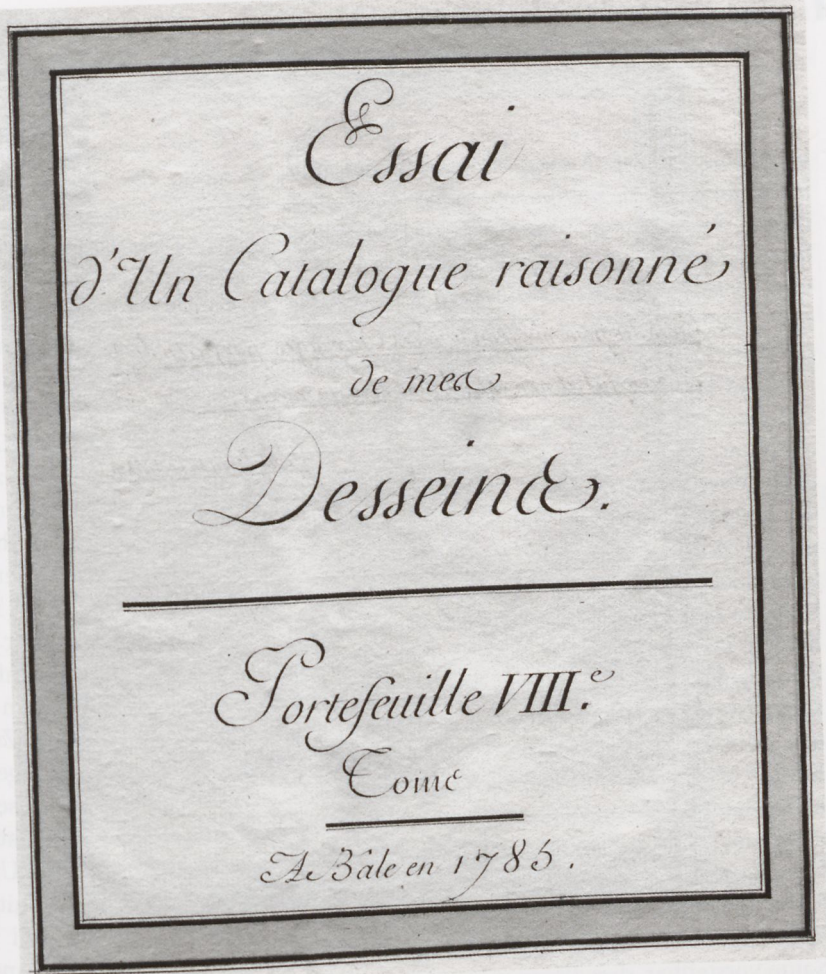 Essai
d'Un Catalogue raisonné
de mes
Desseins.
Portefeuille VIII.e
Tome
A Bâle en 1785.